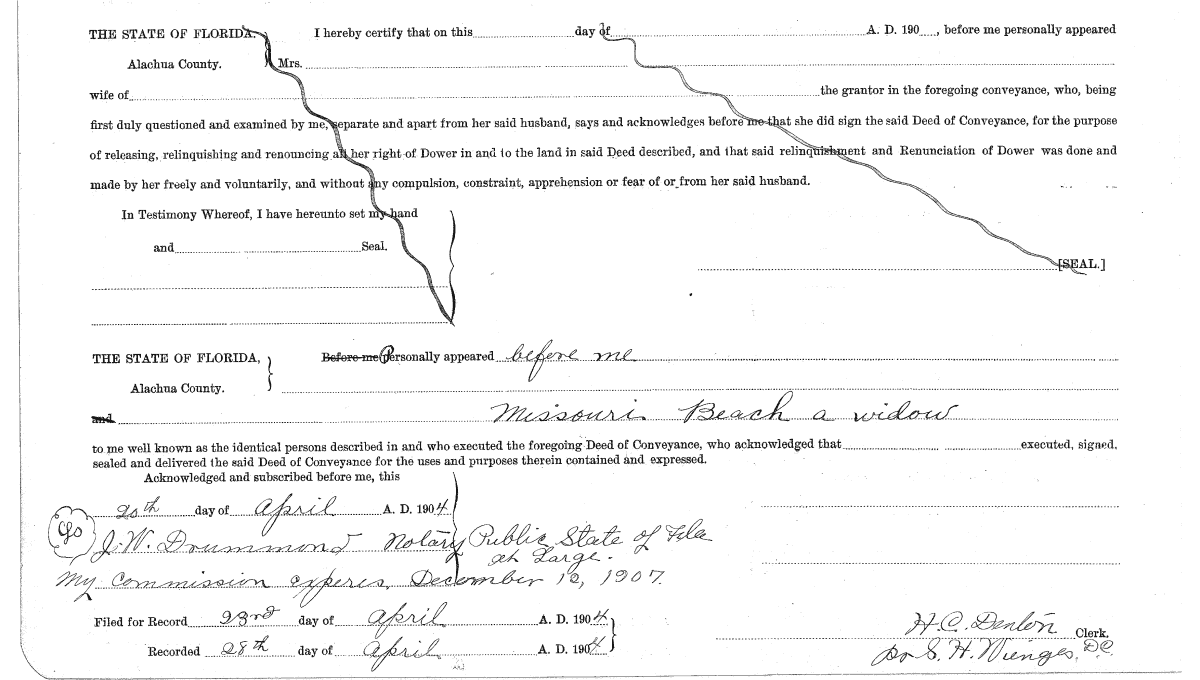 THE STATE OF FLORIDA. I hereby certify that on this day of A. D. 190 , before me personally appeared
Alachua County. Mrs.
wife of the grantor in the foregoing conveyance, who, being
first duly questioned and examined by me, separate and apart from her said husband, says and acknowledges before me that she did sign the said Deed of Conveyance, for the purpose
of releasing, relinquishing and renouncing all her right of Dower in and to the land in said Deed described, and that said relinquishment and Renunciation of Dower was done and
made by her freely and voluntarily, and without any compulsion, constraint, apprehension or fear of or from her said husband.
In Testimony Whereof, I have hereunto set my hand
and Seal.
[SEAL.]
THE STATE OF FLORIDA, Before me Personally appeared before me
Alachua County.
and Missouri Beach a widow
to me well known as the identical persons described in and who executed the foregoing Deed of Conveyance, who acknowledged that executed, signed,
sealed and delivered the said Deed of Conveyance for the uses and purposes therein contained and expressed.
Acknowledged and subscribed before me, this
20th day of April A. D. 1904
J. W. Drummond Notary Public State of Fla
at Large.
My commission experes December 12, 1907.
Filed for Record 23rd day of April A. D. 1904
H. C. Denton Clerk.
Recorded 28th day of April A. D. 1904
pr S. H. Wienges, D.C.